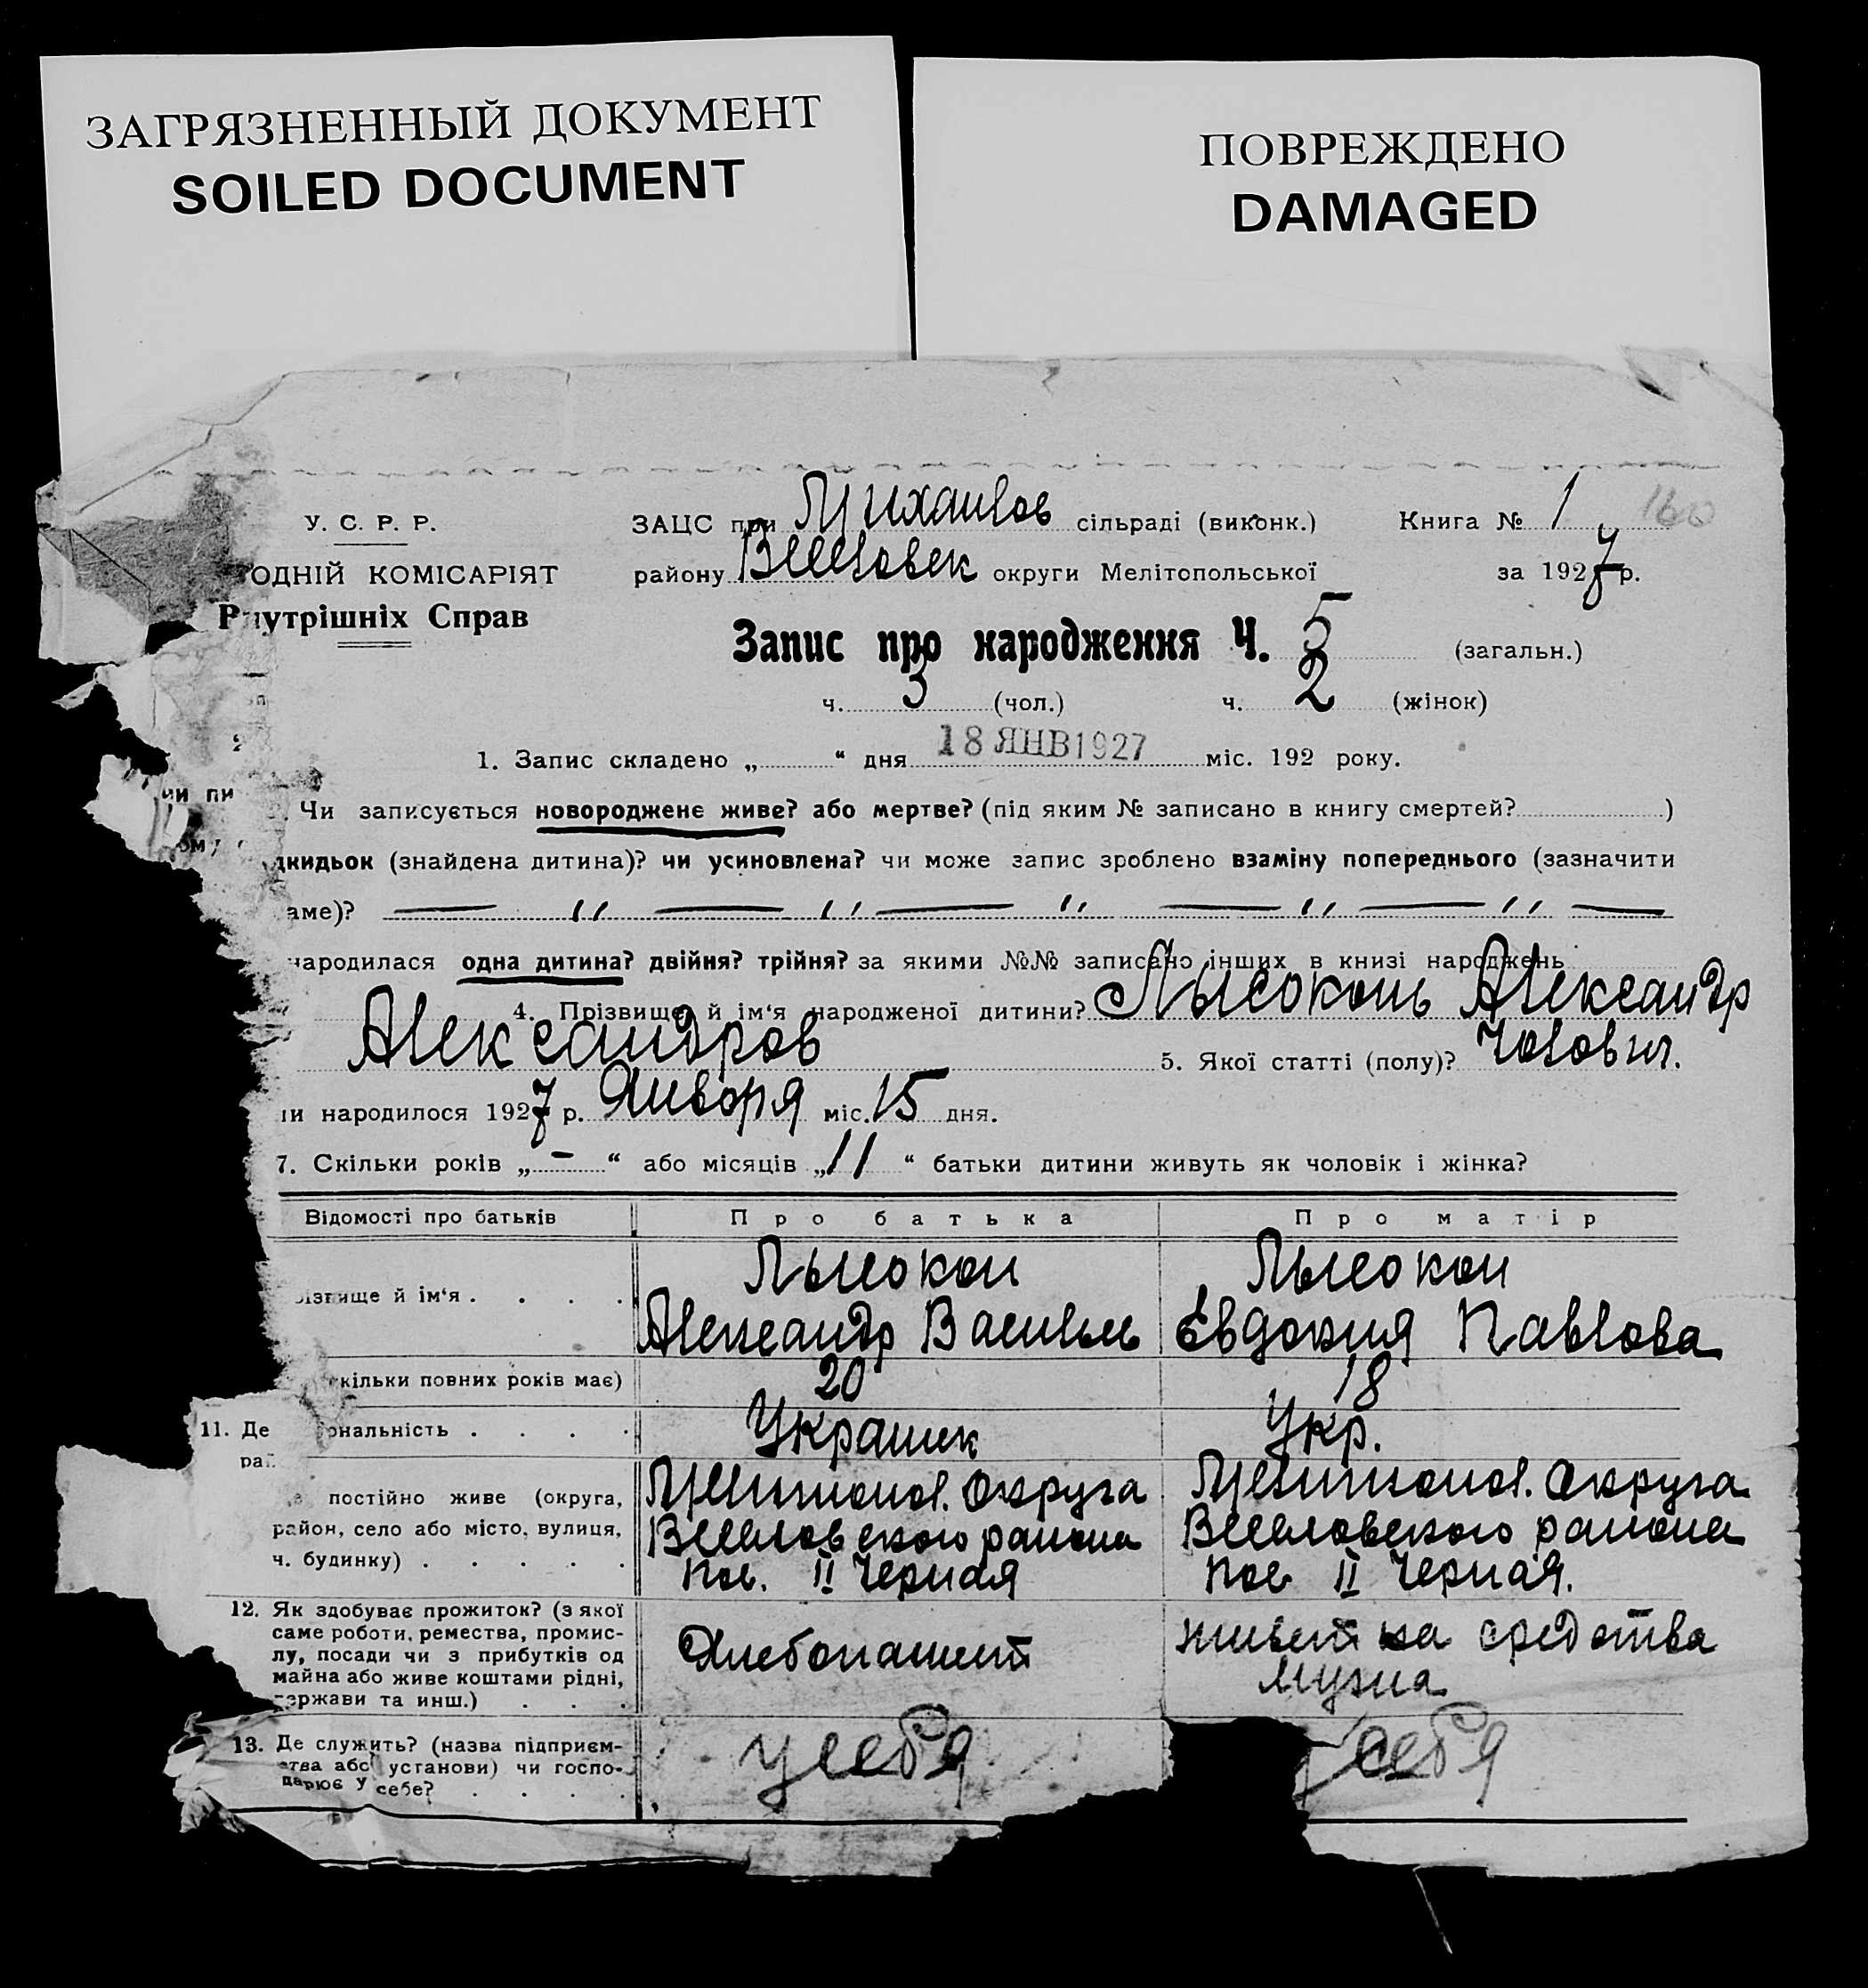 ЗАГРЯЗНЕННЫЙ ДОКУМЕНТ
SOILED DOCUMENT
ПОВРЕЖДЕНО
DAMAGED
У. С. Р. Р.
ОДНІЙ КОМІСАРІЯТ
Внутрішніх Справ
ЗАЦС при Михайлов сільраді (виконк.) Книга № 1 160
району Веселовск округи Мелітопольської за 1927 р.
Запис про народження Ч. 5 (загальн.)
ч. 3 (чол.) ч. 2 (жінок)
1. Запис складено „ “ дня 18 ЯНВ 1927 міс. 192 року.
Чи записується новороджене живе? або мертве? (під яким № записано в книгу смертей? )
дкидьок (знайдена дитина)? чи усиновлена? чи може запис зроблено взаміну попереднього (зазначити
аме)? — „ — „ — „ — „ — „ —
народилася одна дитина? двійня? трійня? за якими №№ записано інших в книзі народжень
4. Прізвище й ім‘я народженої дитини? Лысоконь Александр
Александров 5. Якої статті (полу)? Чоловіч.
ли народилося 1927 р. Января міс. 15 дня.
7. Скільки років „ - “ або місяців „ 11 “ батьки дитини живуть як чоловік і жінка?
Відомості про батьків Про батька Про матір
різвище й ім‘я . . . . Лысокон Лысокон
Александр Васильев Евдокия Павлова
скільки повних років має) 20 18
11. Де
ональність . . . . Украинец Укр.
рай
постійно живе (округа, Мелитопол. Округа Мелитопол. Округа
район, село або місто, вулиця, Веселовского района Веселовского района
ч. будинку) . . . . . пос. II Черная пос II Черная.
12. Як здобуває прожиток? (з якої
саме роботи, ремества, промис-
лу, посади чи з прибутків од
майна або живе коштами рідні,
держави та инш.) . . .
Хлебопашест живет на средства
мужа
13. Де служить? (назва підприєм-
ства або установи) чи госпо-
дарює у себе? . . . .
у себя у себя